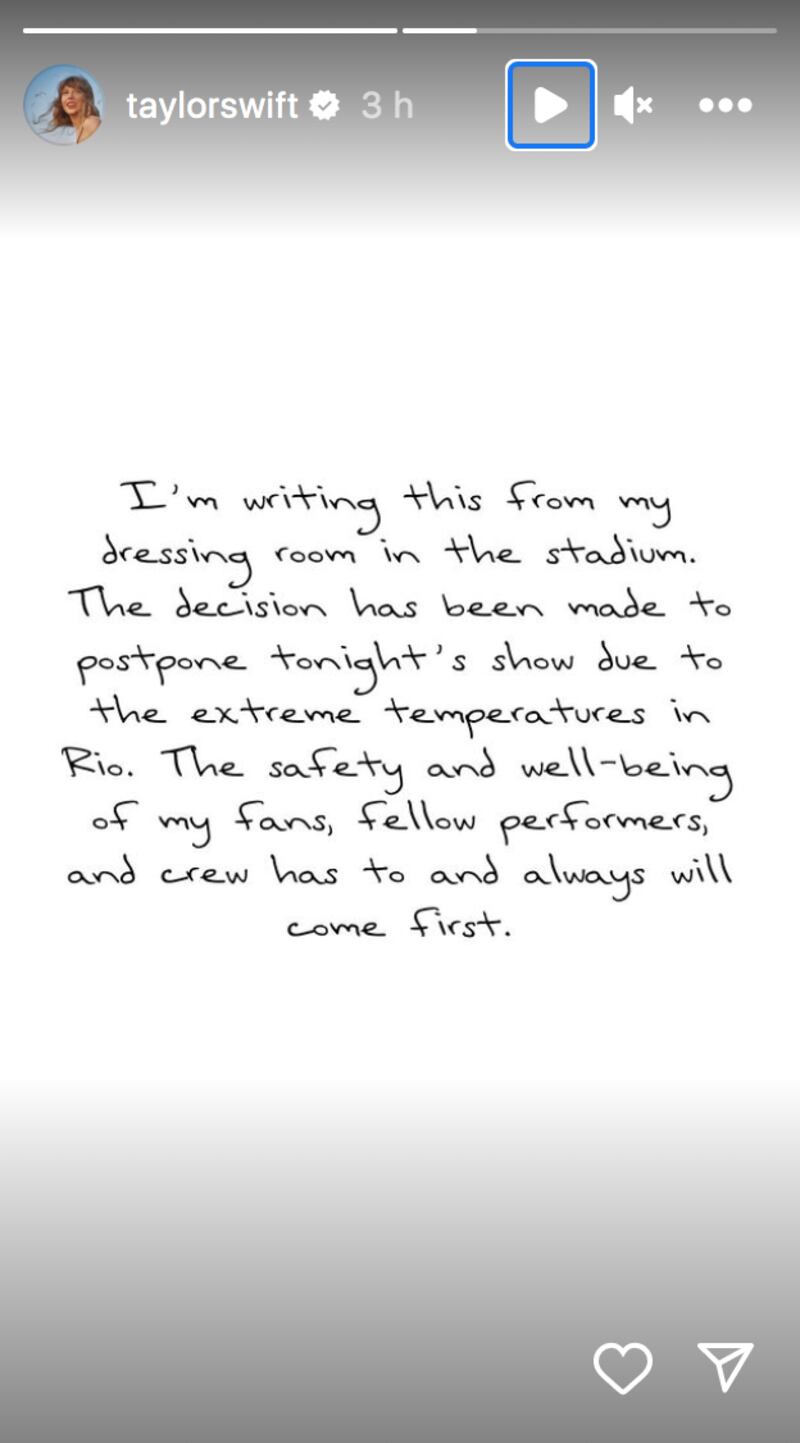 taylorswift 3 h
I'm writing this from my
dressing room in the stadium.
The decision has been made to
postpone tonight's show due to
the extreme temperatures in
Rio. The safety and well-being
of my fans, fellow performers,
and crew has to and always will
come first.